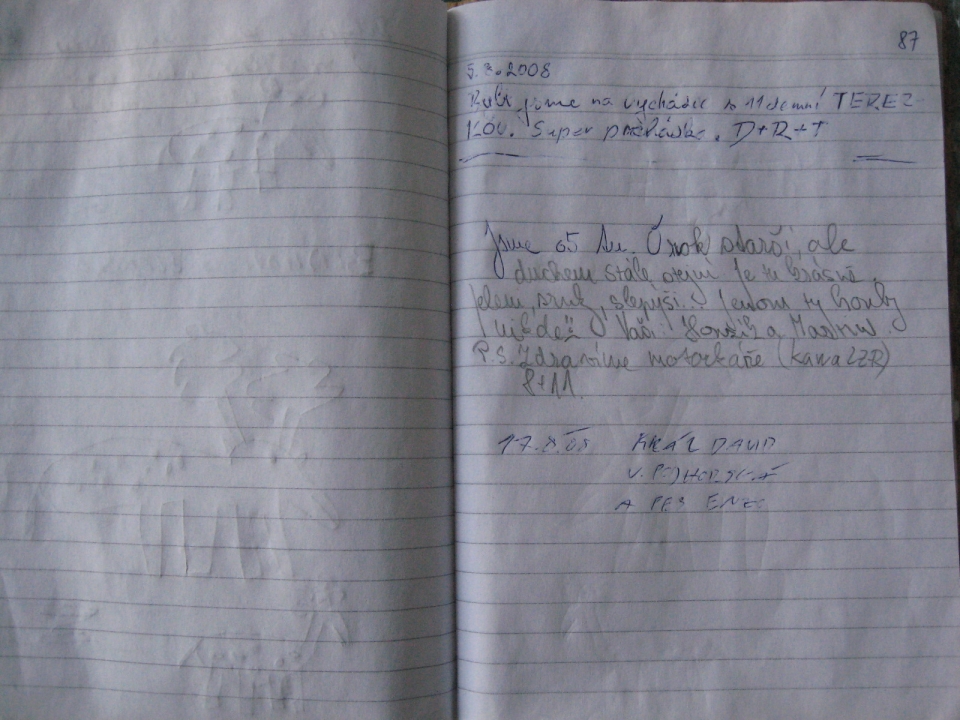 87
5.8.2008
Byli jsme na vycházce s 11denní TEREZ-
KOU. Super procházka. D+R+T
Jsme o5 tu. O rok starší, ale
duchem stále stejní. Je tu krásně
jelen, srnk, slepýši. Jenom ty houby
nikde. Vaši: Honzík a
P.S. Zdravíme motorkáře (kawa ZZR)
8+11.
17.8.08 KRÁL DAVID
V. PODHORSKÁ
A PES